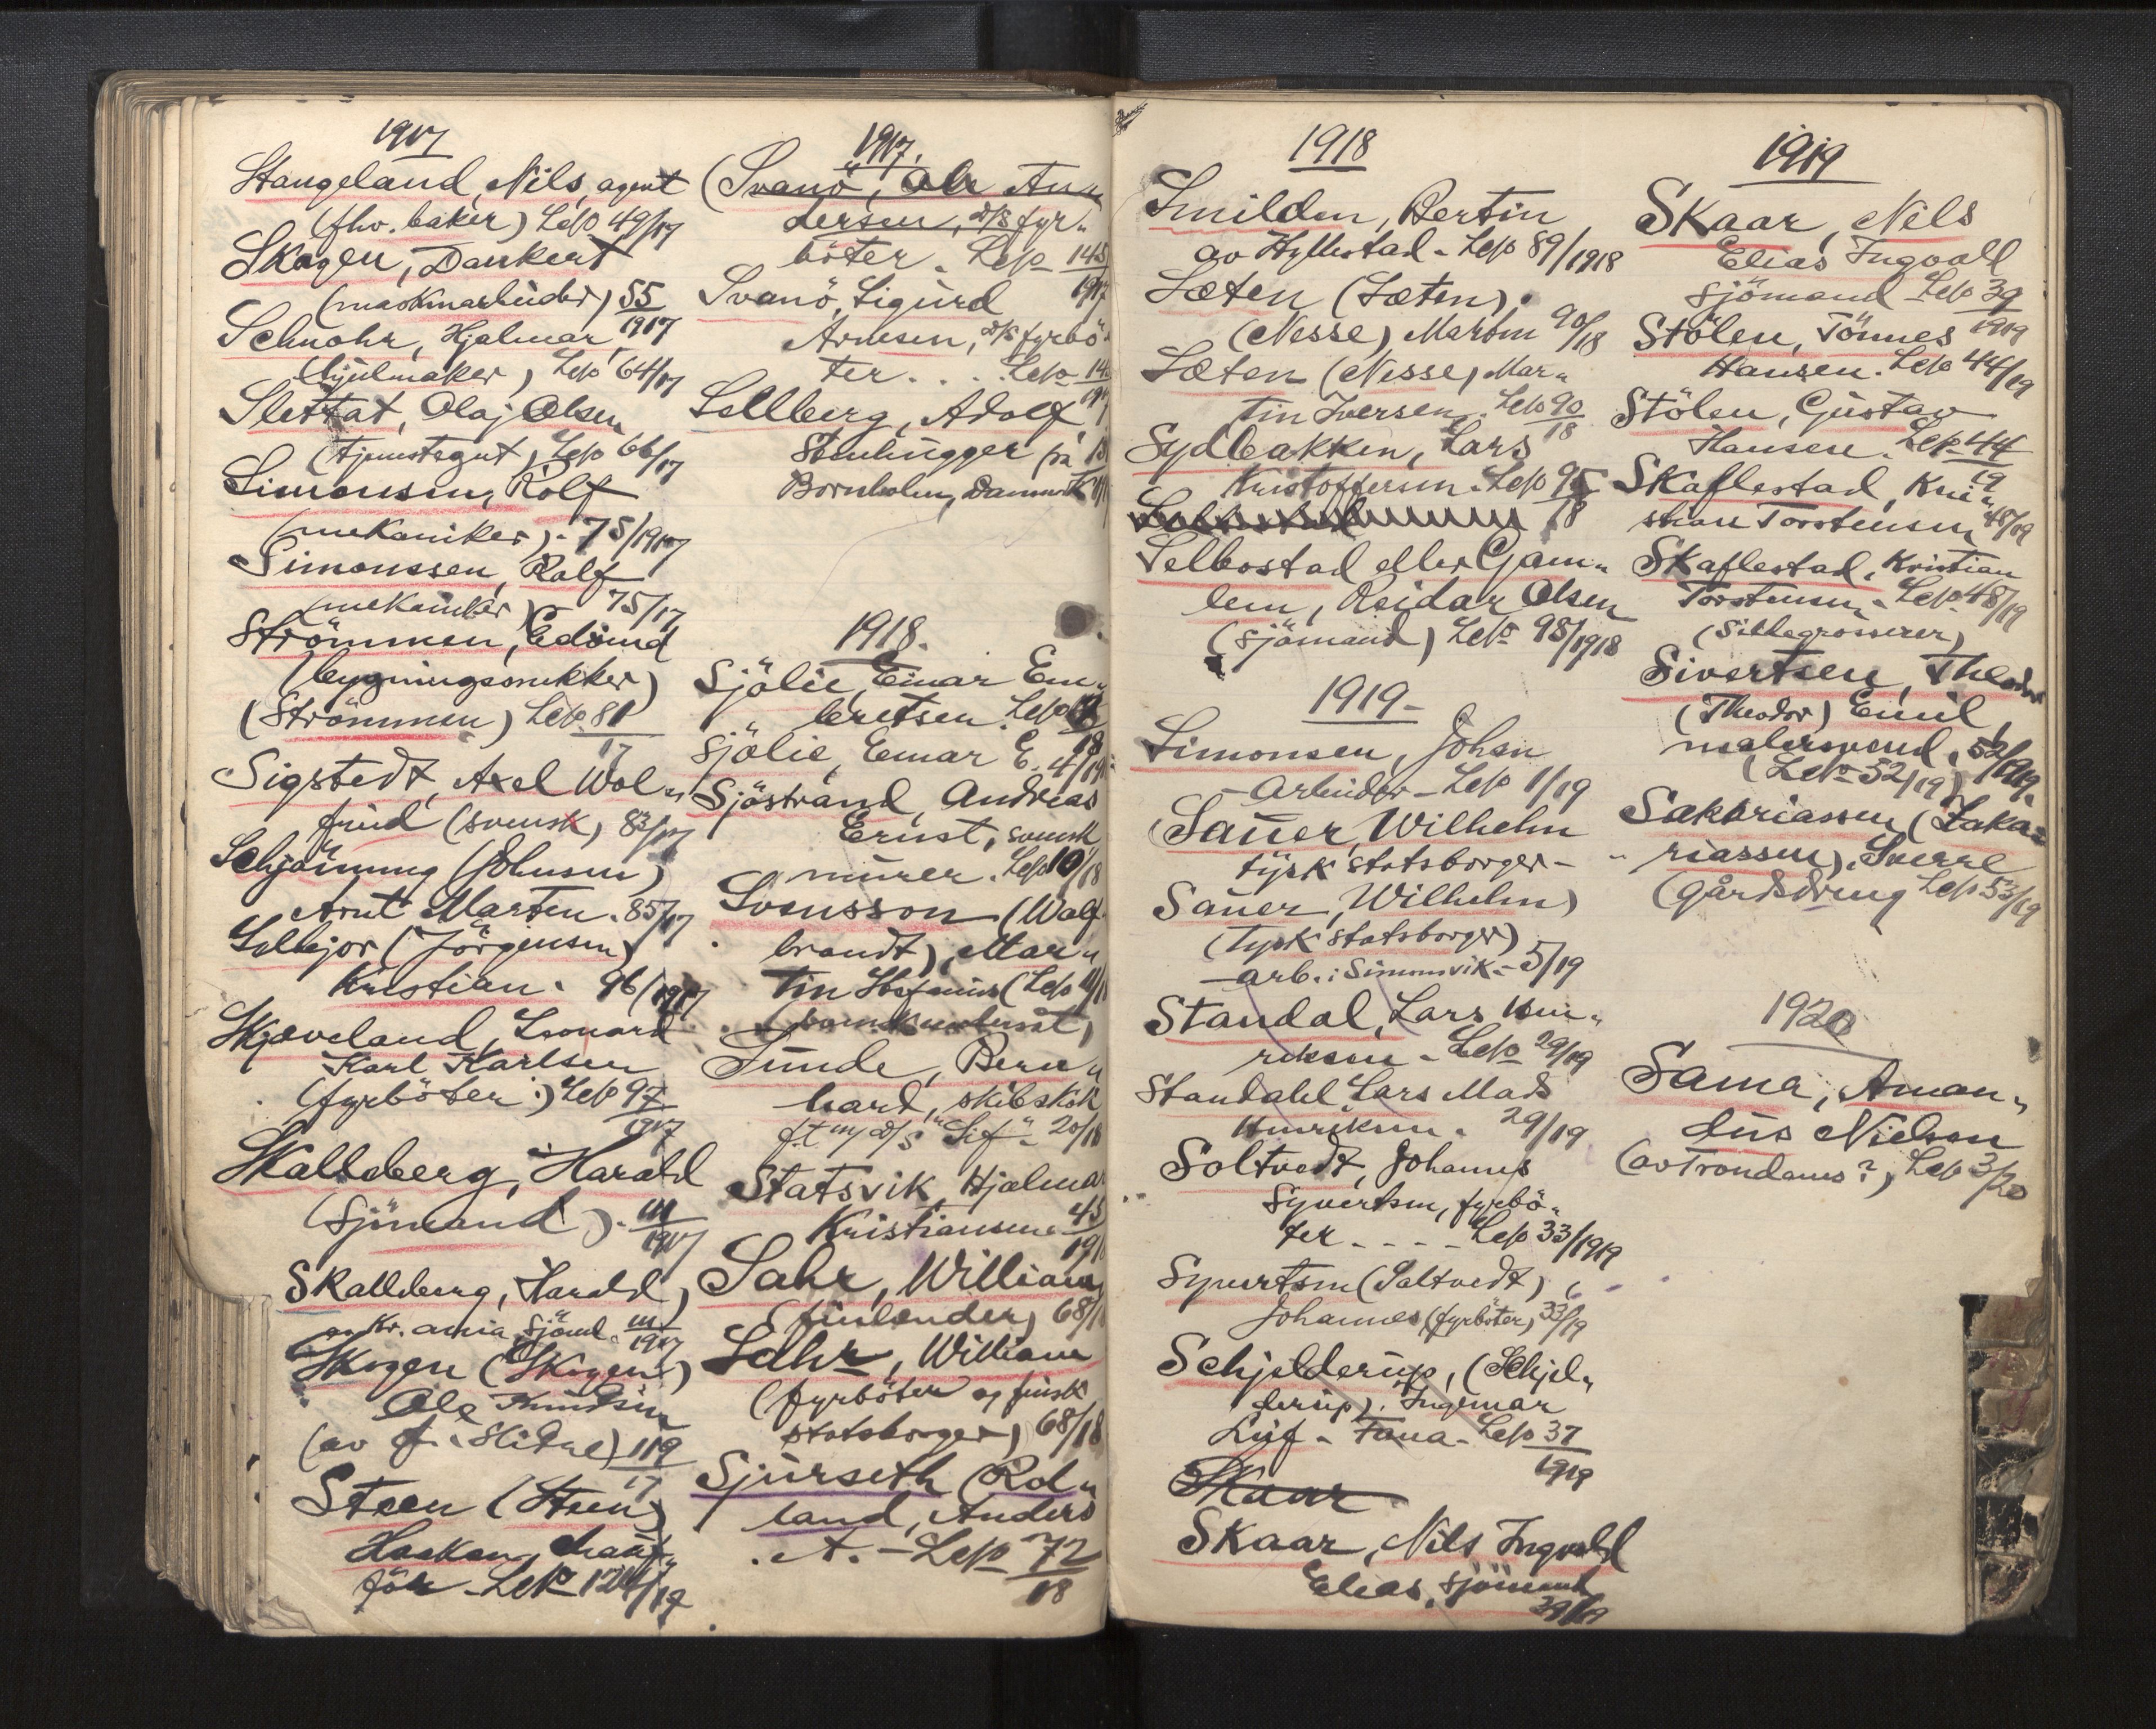 1917
Stangeland, Nils, agent
(fhv. baker) Lep 49/17
Skogen, Dankert
(maskinarbeider) 55
Schnohr, Hjalmar 1917
(hjulmaker) Lep 64/17
Slettat, Olaj Olsen
(tjenestegut) Lep 66/17
Simonsen, Rolf
(mekaniker). 75/1917
Simonssen, Rolf
(mekaniker) - 75/17
Strömmen, Edvind
(bygningssnekker)
(Strömmen) Lep. 81
17
Sigstedt, Axel Wol„
frid (svensk) 83/17
Schjönning (Johnsen)
Arnt Marten. 85/17
(Jörgensen)
Kristian. 96/1917
Skjæveland, Leonard
Karl Karlsen
(fyrböter:) Lep 97
1917
Skallberg, Harald
(Sjömand). 111
1917
Skallberg, Harald,
av Kr.ania, Sjömd. 111
1917
Skogen (Skogen)
Ole Knudsen
(av Slidre) 119
17
Steen (Steen)
Haakon, chauf„
för - Lep 124/17
1917.
(Svanö, Ole An„
dersen, d/s fyr„
böter. Lep 145
1917
Svanö, Sigurd
Arnesen, d/s fyrbö„
ter. . . . Lep
Sellberg, Adolf
Stenhugger på
Bornholm, Danmark
1918.
Sjölie, Einar Em„
bretsen. Lep 4
18
Sjölie, Einar E. 4/191
Sjöstrand, Andreas
Ernst, svensk
murer. Lep 10/18
Svensson (Wolf„
brandt), Mar„
tin (Lep
Sunde, Bern„
hard, skibskok
f.t. m/ d/s "Leif" - 20/18
Statsvik, Hjalmar
Kristiansen - 45
191
Sahr, William
(finlender) 68/1
Sahr, William
(fyrböter og finsk
statsborger) 68/18
Sjurseth (Rol„
land, Anders
A. - Lep 72
18
1918
Smilden, Bertin
av Hyllestad - Lep 89/1918
Sæten (Sæten).
(Nesse) Martin 90/18
Sæten (Nesse) Mar„
tin Iversen. Lep 90
18
Sydbakken, Lars
Kristoffersen. Lep 95
18
Selbostad eller Gam„
lem, Reidar Olsen
(sjömand) Lep 98/1918
1919 -
Simonsen, Johan
- Arbeider - Lep 1/19
Sauer, Wilhelm
tysk statsborger -
Sauer, Wilhelm)
(Tysk statsborger)
- arb. i Simonsvik. - 5/19
Standal, Lars Hen„
riksen - Lep 29/19
Standahl, Lars Mads
Henriksen. 29/19
Soltvedt, Johannes
Syvertsen, fyrbö„
ter - - - - Lep 33/1919
Syvertsen (Saltvedt)
Johannes (fyrböter) 33/19
Schjelderup, (Schjel„
derup), Ingemar
Luf - Fana - Lep 37
1919
Skaar
Skaar, Nils Ingvald
Elias, sjömand
39/19
1919
Skaar, Nils
Elias Ingvall
Sjömand - Lep 39
1919
Stölen, Tönnes
Hansen. Lep 44/19
Stölen, Gustav
Hansen. Lep 44
19
Skaflestad, Kri„
stian Torstensen 48/19
Skaflestad, Kristian
Torstensen. Lep. 48/19
(Sildegrosserer)
Sivertsen, Theodor
(Theodor) Emil,
malersvend, 52/1919.
(Lep 52/19)
Sakkariassen (Zaka„
riassen), Sverre
(gårdsdreng Lep 53/19
1920
Sama, Aman„
dus Nielsen
(av Trondenes?) Lep 3/20